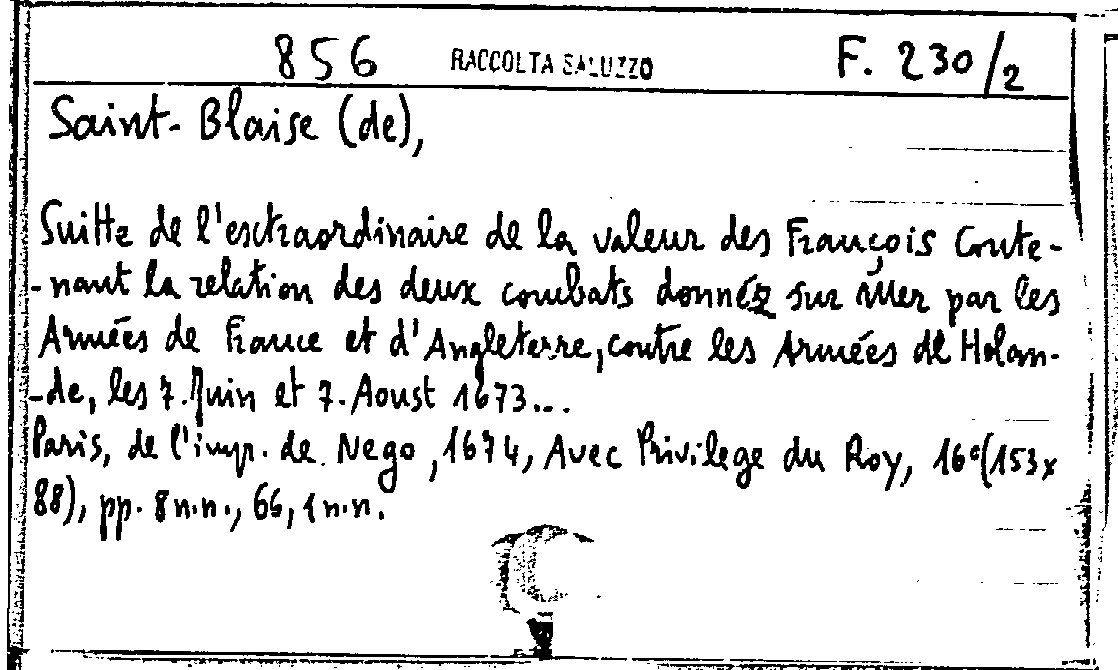 856 RACCOLTA SALUZZO F. 230/2
Saint-Blaise (de),
Suitte de l'esctraordinaire de la valeur des François Conte-
-nant la relation des deux combats donnéz sur Mer par les
Armées de France et d'Angleterre, contre les Armées de Holan-
-de, les 7. Juin et 7. Aoust 1673...
Paris, de l'impr. de Nego, 1674, Avec Privilege du Roy, 16°(153x
88), pp. 8 n.n., 66, 1 n.n.